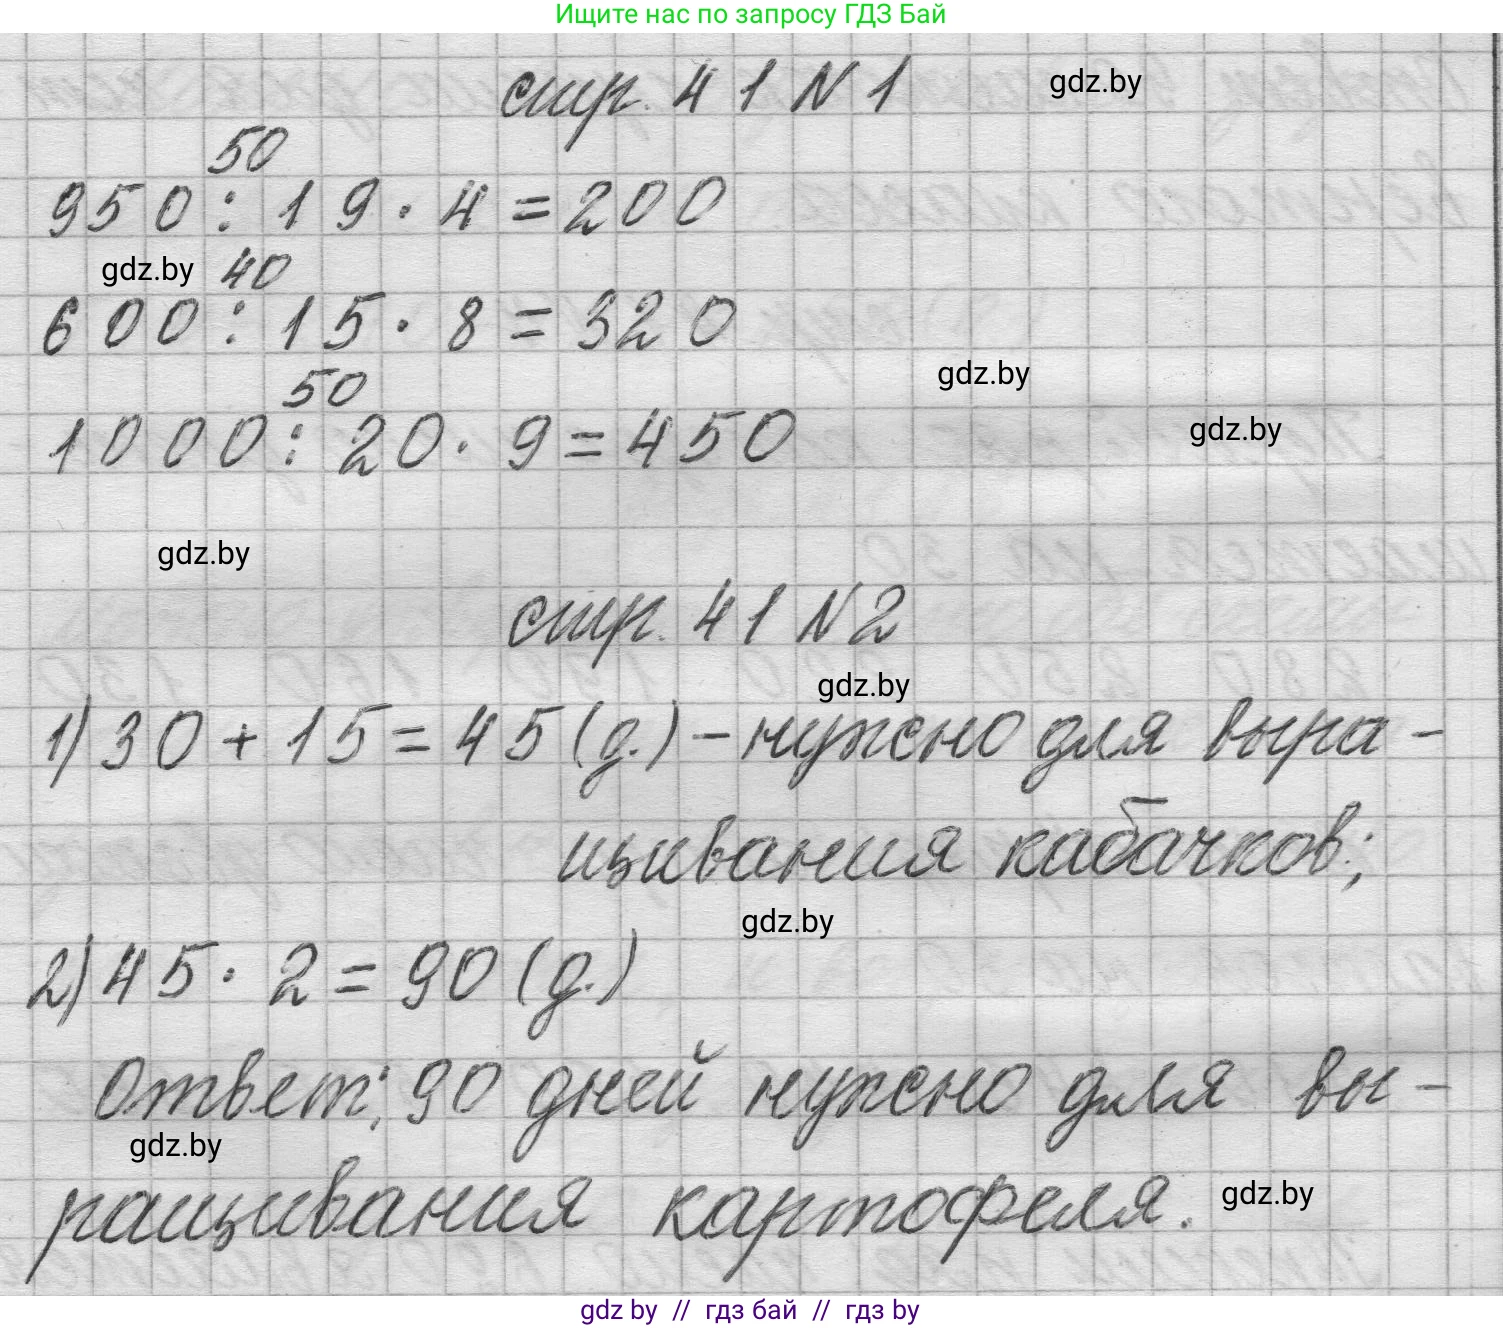 Ищите нас по запросу ГДЗ Бай
стр. 41 N 1
gdz.by
50
950 : 19 · 4 = 200
gdz.by
40
600 : 15 · 8 = 320
gdz.by
50
1000 : 20 · 9 = 450
gdz.by
gdz.by
стр. 41 N 2
gdz.by
1) 30 + 15 = 45 (д.) – нужно для выра-
щивания кабачков;
gdz.by
2) 45 · 2 = 90 (д.)
Ответ: 90 дней нужно для вы-
gdz.by
ращивания картофеля.
gdz.by
gdz by // гдз бай // гдз by